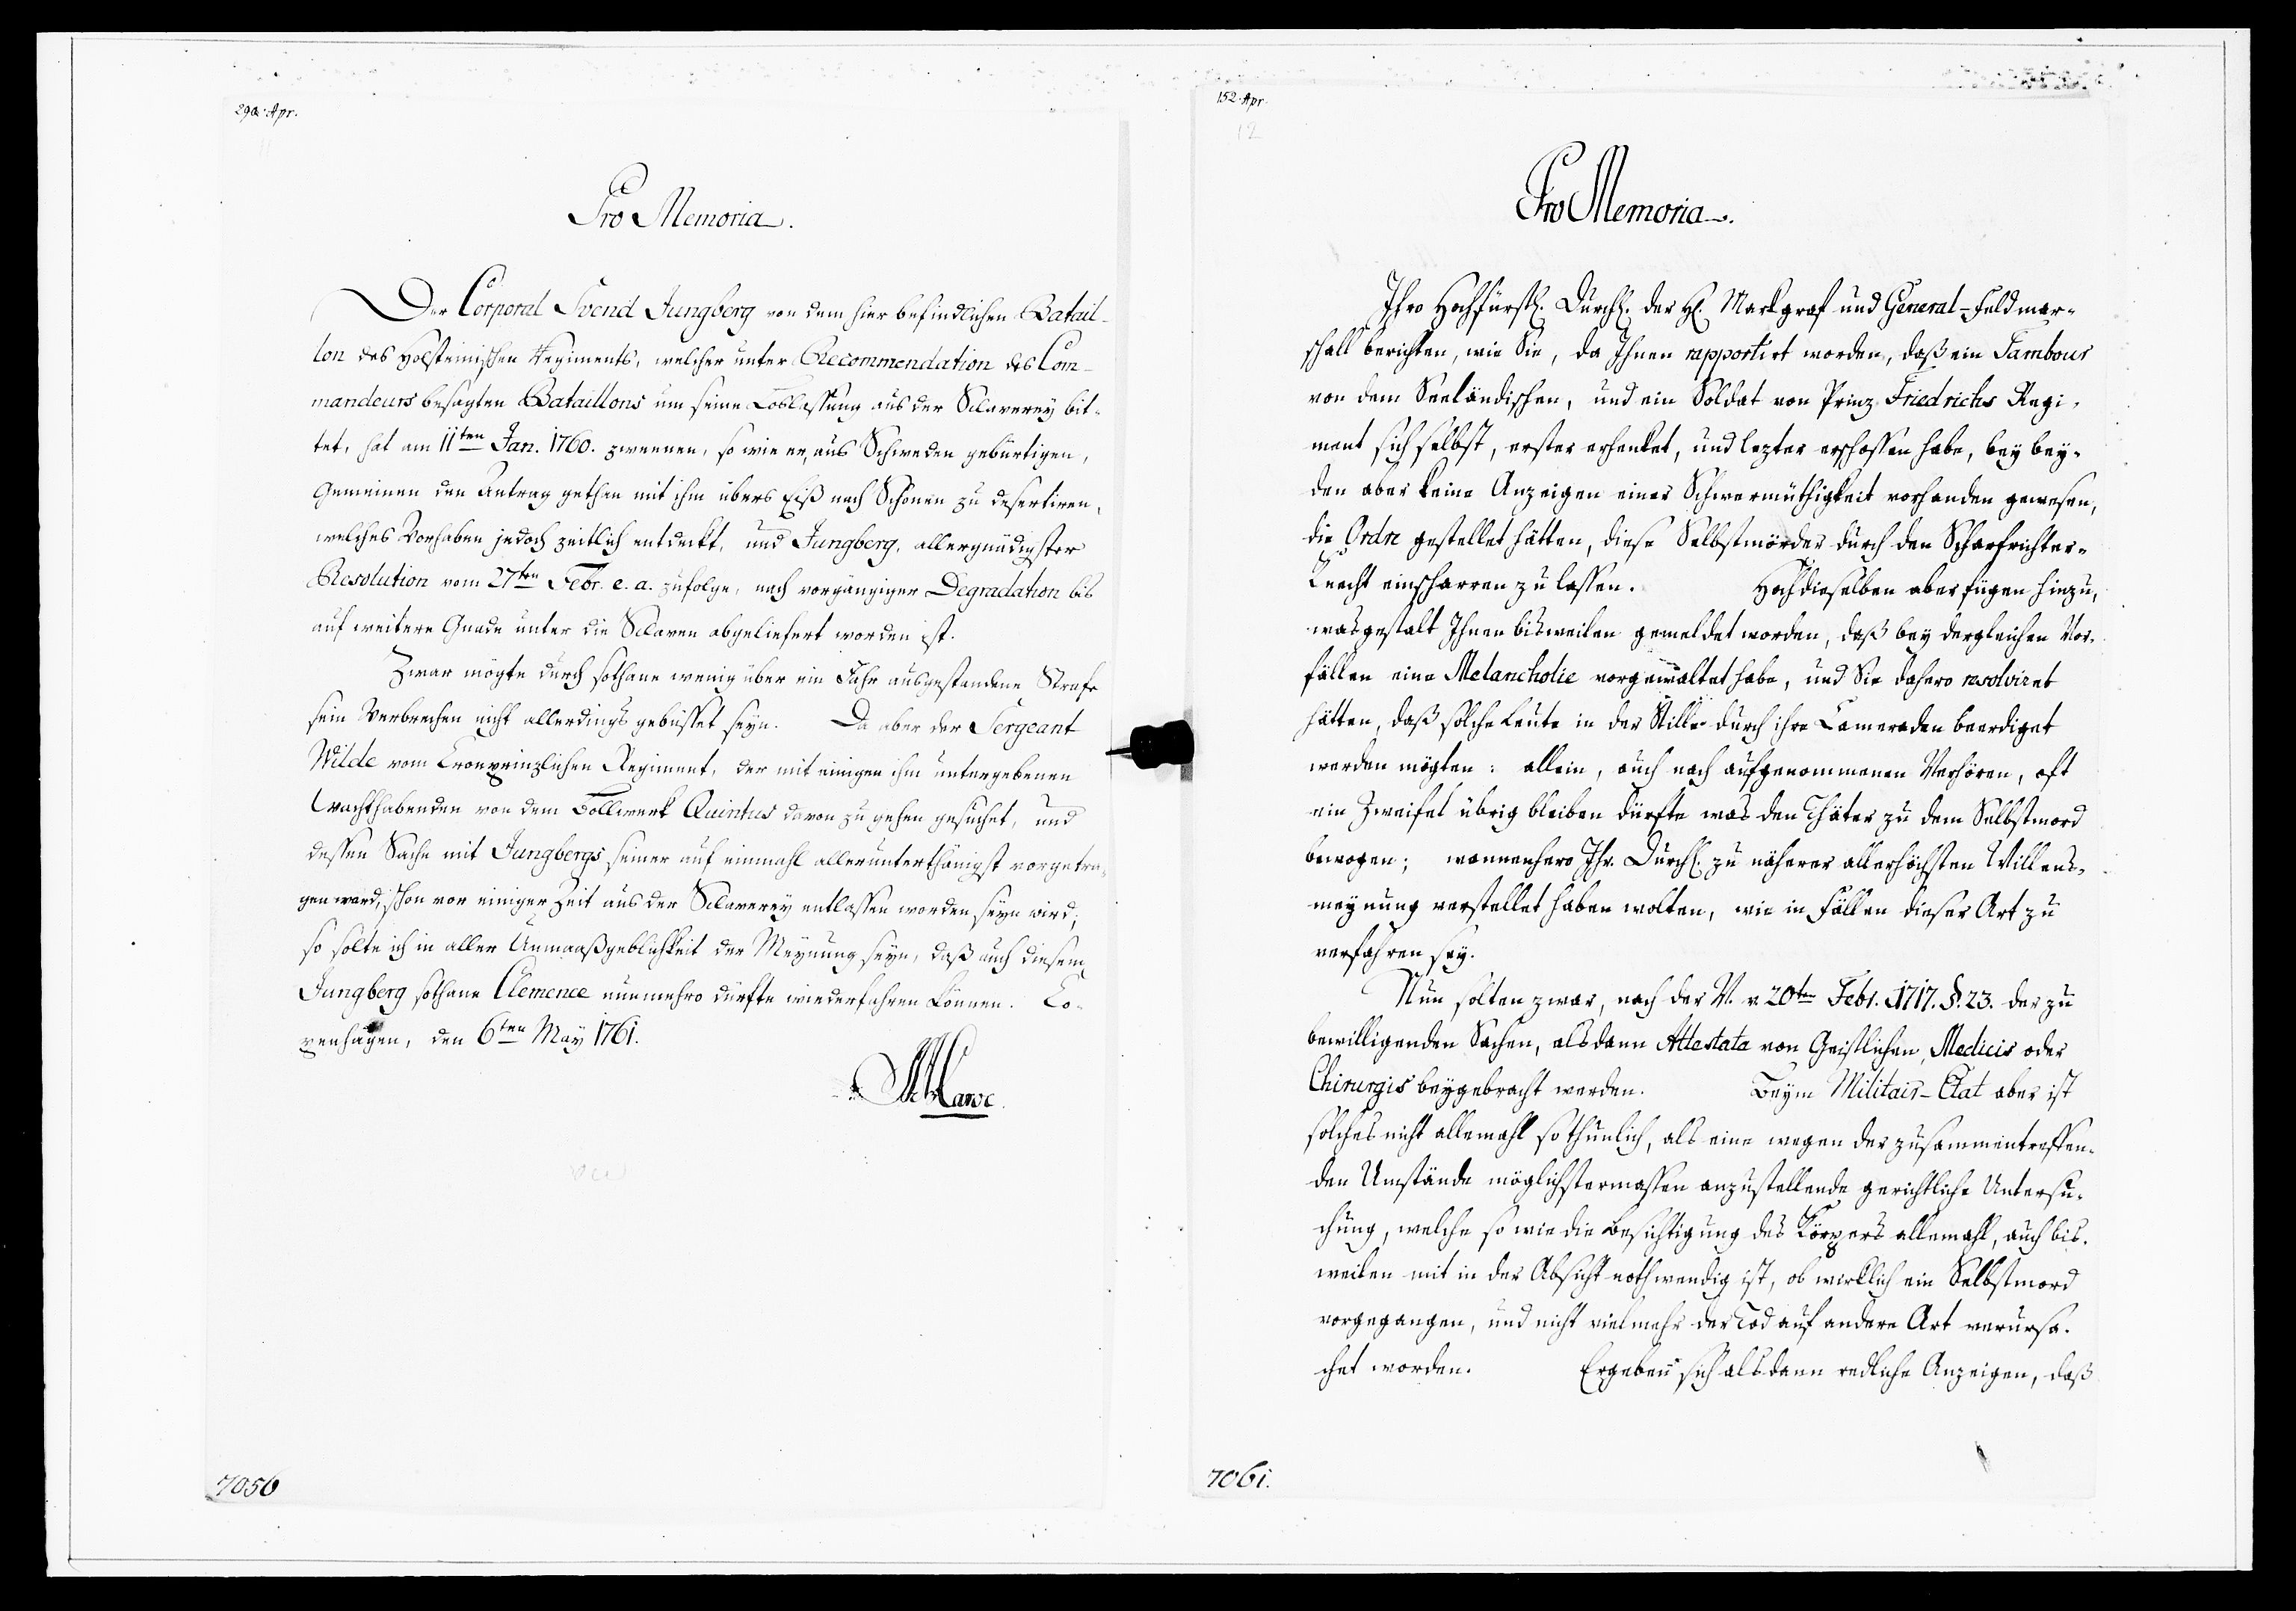 29a. Apr.
11
Pro Memoria.
Der Corporal Svend Jungberg von dem hier befindlichen Batail-
lon des Holsteinischen Regiments, welcher unter Recommendation des Com-
mandeurs besagten Bataillons um seine Loslassung aus der Sclaverey bit-
tet, hat am 11ten Jan. 1760. zweenen, so wie er, aus Schweden gebürtigen,
Gemeinen den Antrag gethan mit ihm übers Eiß nach Schonen zu desertiren,
welches Vorhaben jedoch zeitlich entdeckt, und Jungberg, allergnädigster
Resolution vom 27ten Febr. e. a. zufolge, nach vorgängiger Degradation bis
auf weitere Gnade unter die Sclaven abgeliefert worden ist.
Zwar mögte durch sothane wenig über ein Jahr ausgestandene Strafe
sein Verbrechen nicht allerdings gebüsset seyn. Da aber der Sergeant
Wilde vom Cronprinzlichen Regiment, der mit einigen ihm untergebenen
Wachthabenden von dem Bollwerk Quintus davon zu gehen gesuchet, und
dessen Sache mit Jungbergs seiner auf einmahl allerunterthänigst vorgetra-
gen ward, schon vor einiger Zeit aus der Sclaverey entlassen worden seyn wird;
so solte ich in aller Unmaaßgeblichkeit der Meynung seyn, daß auch diesem
Jungberg sothane Clemence nunmehro dürfte wiederfahren können. Co-
penhagen, den 6ten May 1761.
7056
152. Apr.
12
Pro Memoria.
Ihro Hochfürstl. Durchl. der H. Markgraf und General-Feldmar-
schall berichten, wie Sie, da Ihnen rapportirt worden, daß ein Tambour
von dem Seeländischen, und ein Soldat von Prinz Friedrichs Regi-
ment sich selbst, erster erhenket, und lezter erschossen habe, bey bey-
den aber keine Anzeigen einer Schwermüthigkeit vorhanden gewesen,
die Ordre gestellet hätten, diese Selbstmörder durch den Scharfrichter-
Knecht einscharren zu lassen. Hochdieselben aber fügen hinzu,
wasgestalt Ihnen bisweilen gemeldet worden, daß bey dergleichen Vor-
fällen eine Melancholie vorgewaltet habe, und Sie dahero resolviret
hätten, daß solche Leute in der Stille durch ihre Cameraden beerdiget
werden mögten: allein, auch nach aufgenommenen Verhören, oft
ein Zweifel übrig bleiben dürfte was den Thäter zu dem Selbstmord
bewogen; wannenhero Ihr. Durchl. zu näherer allerhöchsten Willens-
meynung verstellet haben wolten, wie in Fällen dieser Art zu
verfahren sey.
Nun solten zwar, nach der V. v. 20ten Febr. 1717. §. 23. der zu
bewilligenden Sachen, alsdann Attestata von Geistlichen, Medicis oder
Chirurgis beygebracht werden. Beym Militair-Etat aber ist
solches nicht allemahl so thunlich, als eine wegen der zusammentreffen-
den Umstände möglichstermassen anzustellende gerichtliche Untersu-
chung, welche so wie die Besichtigung des Körpers allemahl, auch bis-
weilen mit in der Absicht nothwendig ist, ob wirklich ein Selbstmord
vorgegangen, und nicht vielmehr der Tod auf andere Art verursa-
chet worden. Ergeben sich alsdann redliche Anzeigen, daß
7061.